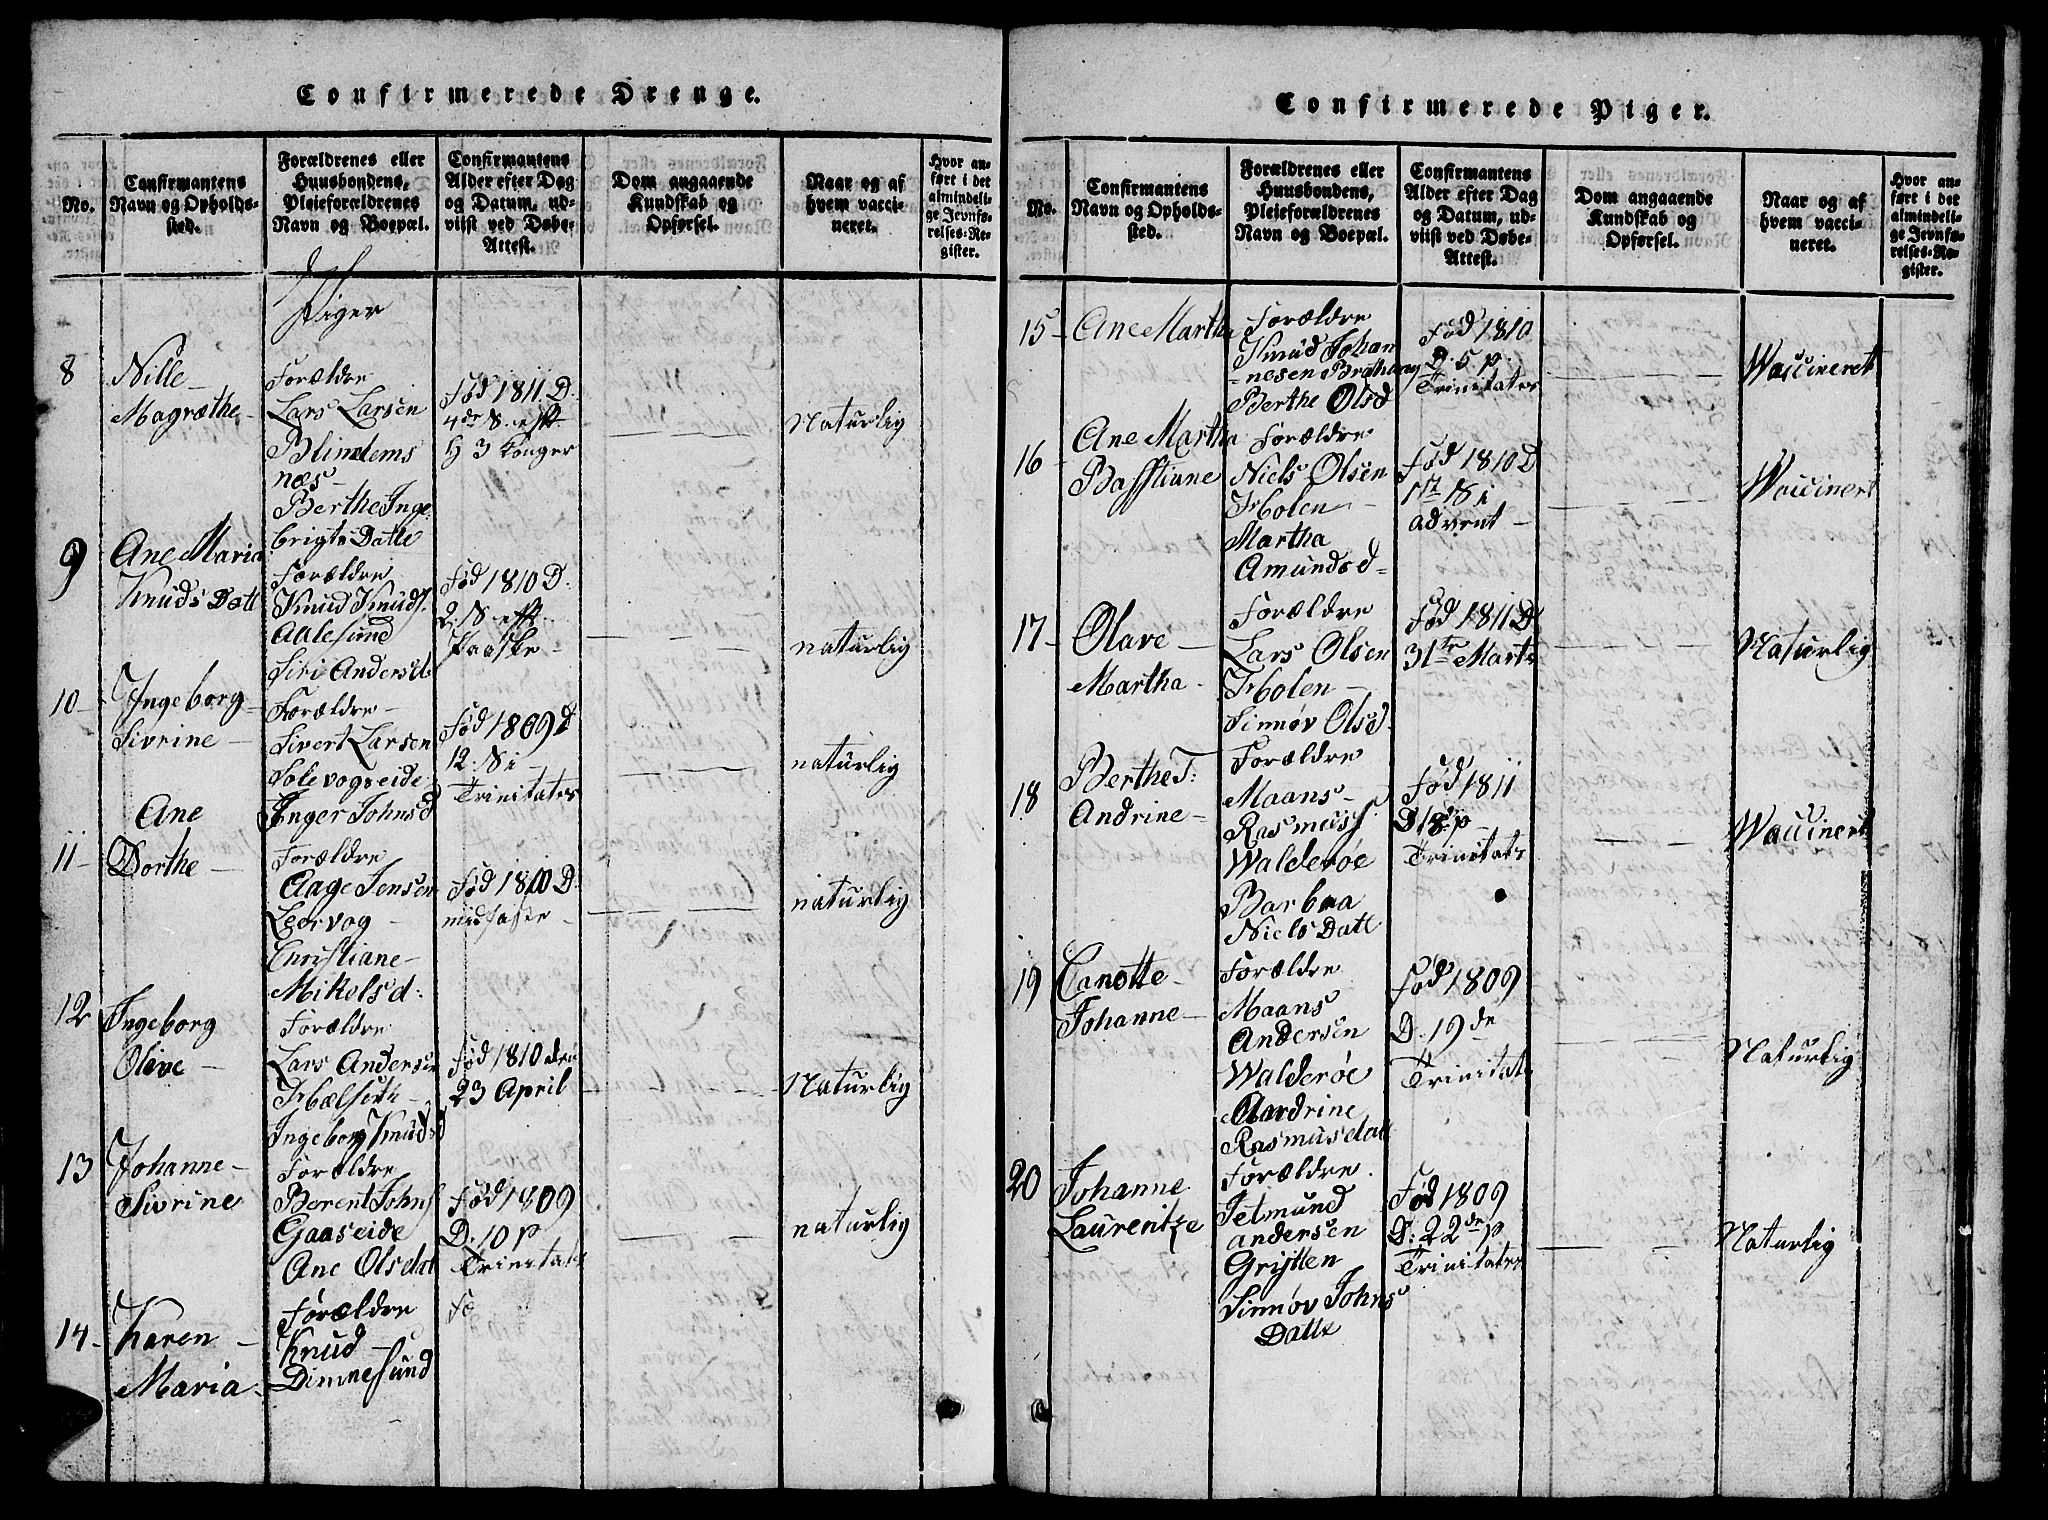 Confirmerede Drenge.
No.
Confirmantens
Navn og Opholds-
sted.
Forældrenes eller
Huusbondens,
Pleieforældrenes
Navn og Boepæl.
Confirmantens
Alder efter Dag
og Datum, ud-
viist ved Døbe-
Attest.
Dom angaaende
Kundskab og
Opførsel.
Naar og af
hvem vacci-
neret.
Hvor an-
ført i det
almindeli-
ge Jevnfø-
relses-Re-
gister.
Piger
8
Nille
Magræthe
Forældre
Lars Larsen
Blindems
næs
Berthe Inge
brigts Datte
Fød 1811 D.
4de S. eft
H 3 Konger
Naturlig
9
Ane Maria
Knuds Datt
Forældre
Knud Knuds.
Aalesund
Siri Andersd
Fød 1810 D.
2. S. eft
Paaske
naturlig
10
Ingeborg
Sivrine
Forældre
Sivert Larsen
Solevogseide
Inger Johnsd
Fød 1809 D
12. S i
Trinitates
naturlig
11
Ane
Dorthe
Forældre
Aage Jensen
Leervog
Christiane
Mikelsd:
Fød 1810 D.
midfaste
naturlig
12
Ingeborg
Olive
Forældre
Lars Andersen
Ingeborg Knudsd
Fød 1810 den
23 April
Naturlig
13
Johanne
Sivrine
Forældre
Berent Johns
Gaaseide
Ane Olsdat
Fød 1809
D. 10 p
Trinitat
naturlig
14
Karen
Maria
Forældre
Knud
Dimnesund
Fø
Confirmerede Piger.
No.
Confirmantens
Navn og Opholds-
sted.
Forældrenes eller
Huusbondens,
Pleieforældrenes
Navn og Boepæl.
Confirmantens
Alder efter Dag
og Datum, ud-
viist ved Døbe-
Attest.
Dom angaaende
Kundskab og
Opførsel.
Naar og af
hvem vacci-
neret.
Hvor an-
ført i det
almindeli-
ge Jevnfø-
relses-Re-
gister.
15
Ane Martha
Forældre
Knud Johan
nesen
Berthe Olsd
Fød 1810
D. 5 p.
Trinitates
Waccineret
16
Ane Martha
Bastiane
Forældre
Niels Olsen
Holen
Martha
Amundsd
Fød 1810 D
1te S i
advent
Waccinert
17
Olave
Martha
Forældre
Lars Olsen
Holen
Sinnøv Olsd.
Fød 1811 D
31te Marts
Naturlig
18
Berthe T:
Andrine
Forældre
Maans
Rasmuss
Walderøe
Barbra
Niels Datt
Fød 1811
D 18de p
Trinitats
Waccinert
19
Canotte
Johanne
Forældre
Maans
Andersen
Walderøe
Rasmusdatt
Fød 1809
D. 19de
Trinitat
Naturlig
20
Johanne
Laurentze
Forældre
Jetmund
andersen
Grytten
Sinnøv Johns
Datte
Fød 1809
D. 22de p
Trinitates
Naturlig